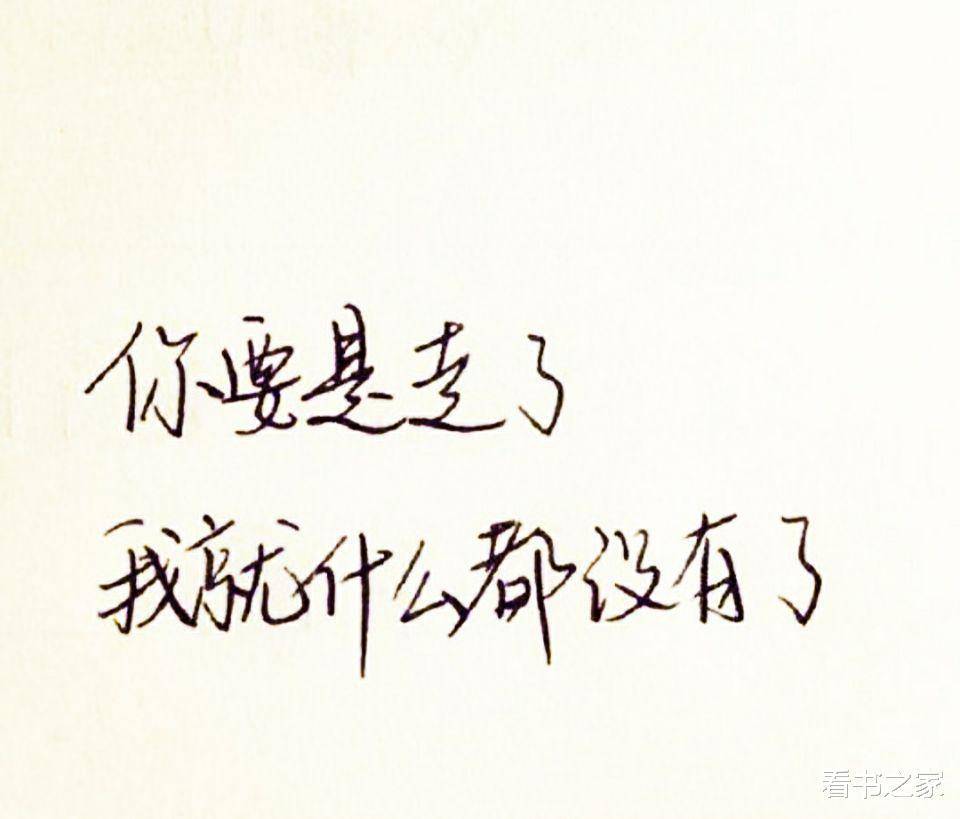 你要是走了
我就什么都没有了
看书之家